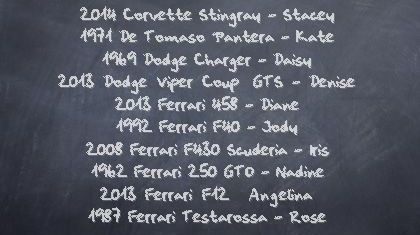 2014 Corvette Stingray - Stacey
1971 De Tomaso Pantera - Kate
1969 Dodge Charger - Daisy
2013 Dodge Viper Coup GTS - Denise
2013 Ferrari 458 - Diane
1992 Ferrari F40 - Jody
2008 Ferrari F430 Scuderia - Iris
1962 Ferrari 250 GTO - Nadine
2013 Ferrari F12 Angelina
1987 Ferrari Testarossa - Rose